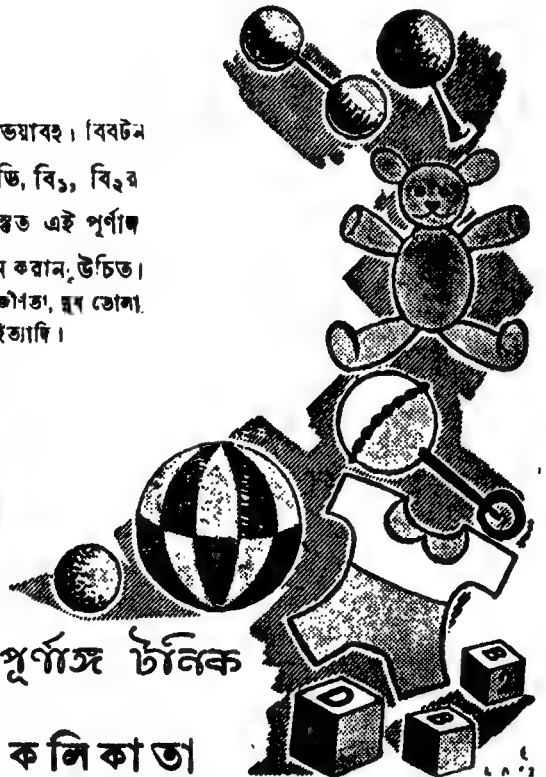 ভয়াবহ। বিবটন
ডি, বি১, বি২র
স্তুত এই পূর্ণাঙ্গ
ন করান উচিত।
জীর্ণতা, দুধ তোলা
ইত্যাদি।
পূর্ণাঙ্গ টনিক
D B B
কলিকাতা